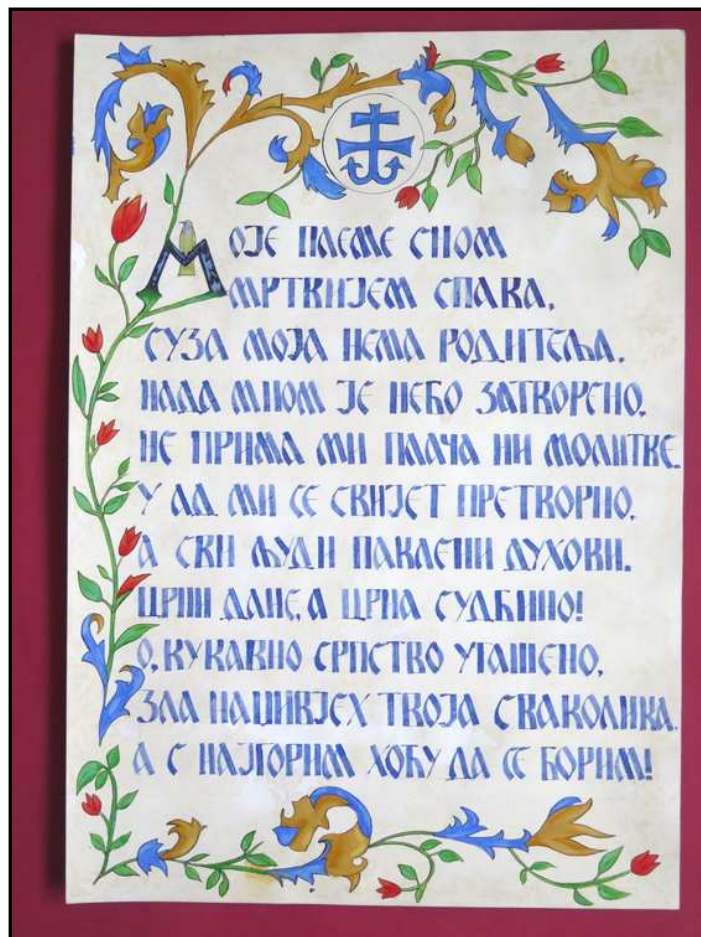 МОЈЕ ПЛЕМЕ СНОМ
МРТВИЈЕМ СПАВА,
СУЗА МОЈА НЕМА РОДИТЕЉА.
НАДА МНОМ ЈЕ НЕБО ЗАТВОРЕНО,
НЕ ПРИМА МИ ПЛАЧА НИ МОЛИТВЕ.
У АД МИ СЕ СВИЈЕТ ПРЕТВОРИО,
А СВИ ЉУДИ ПАКЛЕНИ ДУХОВИ.
ЦРНИ ДАНЕ, А ЦРНА СУДБИНО!
О, КУКАВНО СРПСТВО УГАШЕНО,
ЗЛА НАЏИВЈЕХ ТВОЈА СВАКОЛИКА.
А С НАЈГОРИМ ХОЋУ ДА СЕ БОРИМ!